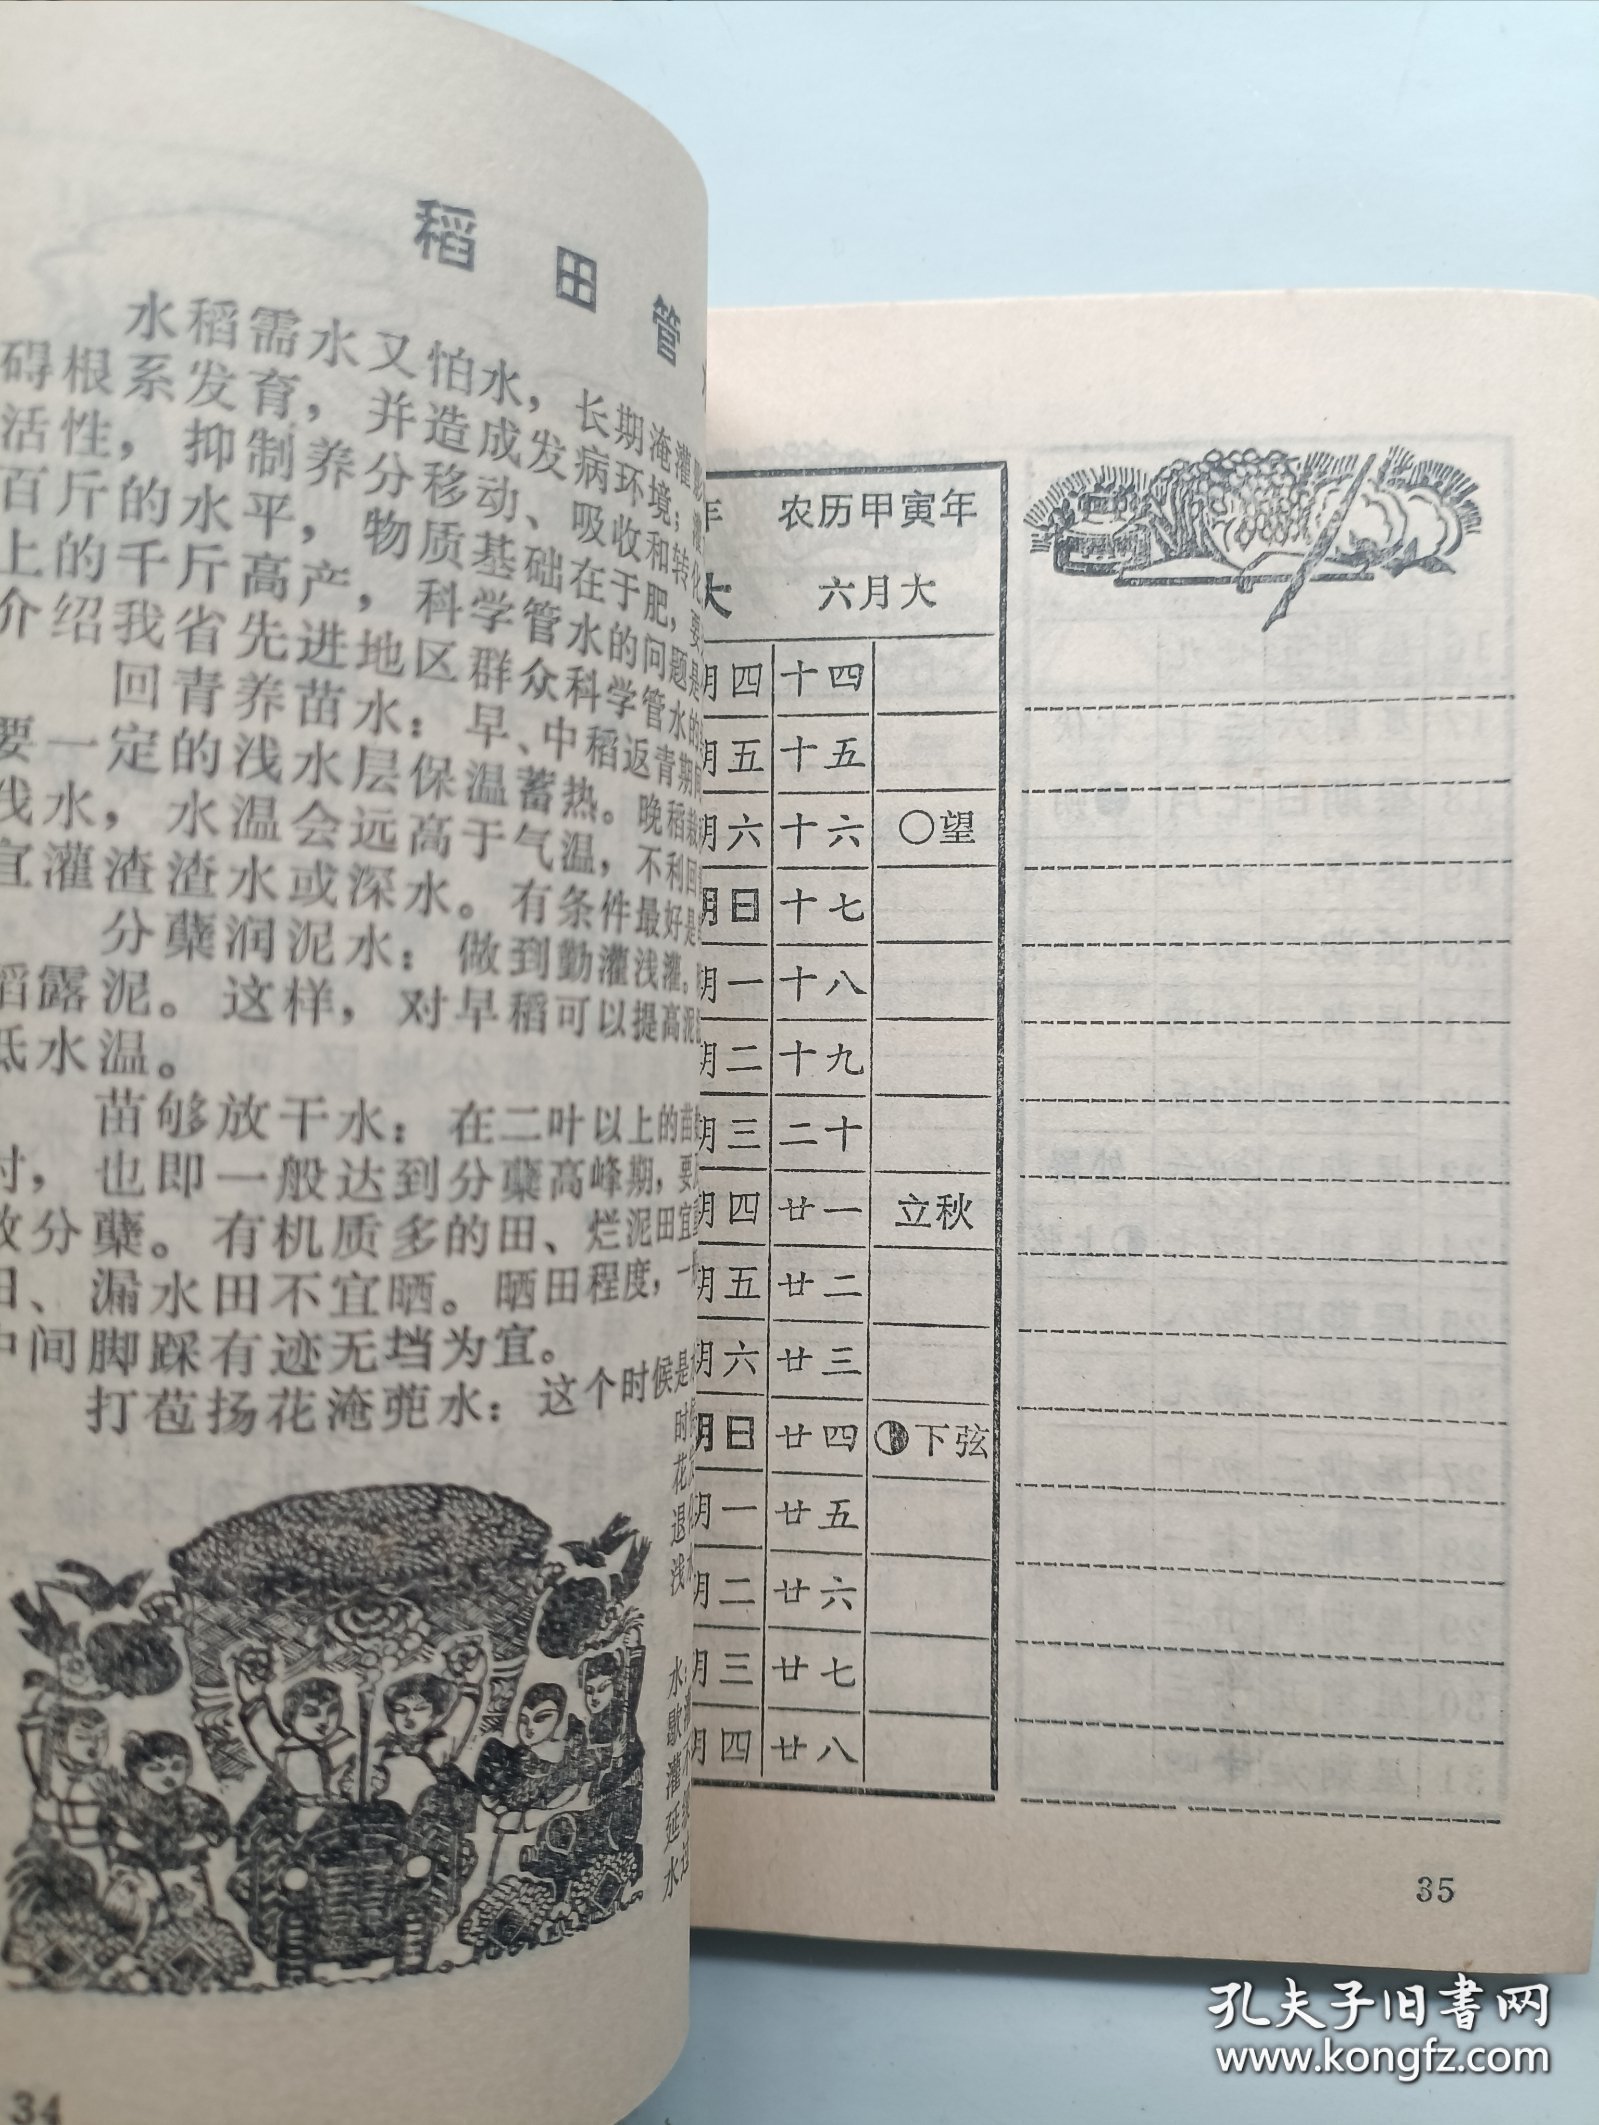 稻田管
水稻需水又怕水，长期淹灌影
碍根系发育，并造成发病环境；灌
活性，抑制养分移动、吸收和转化
百斤的水平，物质基础在于肥，要
上的千斤高产，科学管水的问题是
介绍我省先进地区群众科学管水的
回青养苗水：早、中稻返青期间
要一定的浅水层保温蓄热。晚稻栽
浅水，水温会远高于气温，不利回
宜灌渣渣水或深水。有条件最好是
分蘖润泥水：做到勤灌浅灌。
稻露泥。这样，对早稻可以提高泥
低水温。
苗够放干水：在二叶以上的苗
时，也即一般达到分蘖高峰期，要
效分蘖。有机质多的田、烂泥田宜重
田、漏水田不宜晒。晒田程度，一
中间脚踩有迹无垱为宜。
打苞扬花淹蔸水：这个时候是
时
花
退
浅水
水：
歇
灌
延
水
34
年 农历甲寅年
大 六月大
期四 十四
期五 十五
期六 十六 〇望
期日 十七
期一 十八
期二 十九
期三 二十
期四 廿一 立秋
期五 廿二
期六 廿三
期日 廿四 ◑下弦
期一 廿五
期二 廿六
期三 廿七
期四 廿八
35
孔夫子旧书网
www.kongfz.com